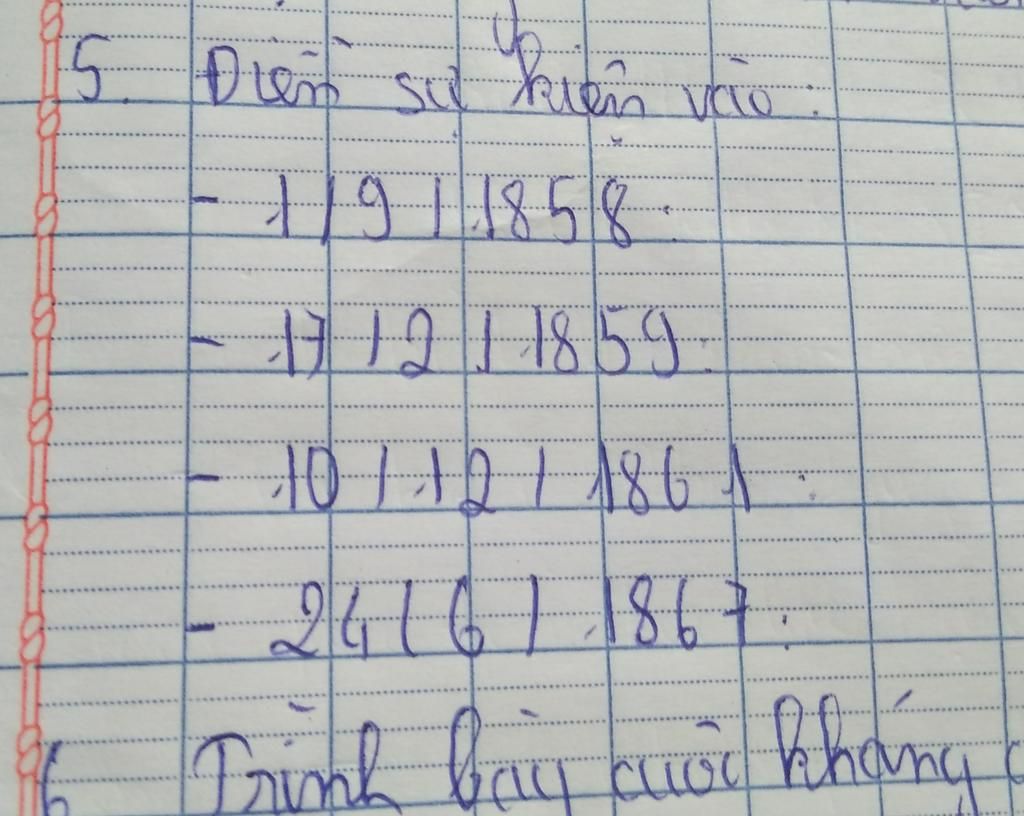 5. Điền sự kiện vào:
- 1/9/1858:
- 17/2/1859:
- 10/12/1861:
- 24/6/1867:
6 Trình bày cuộc kháng